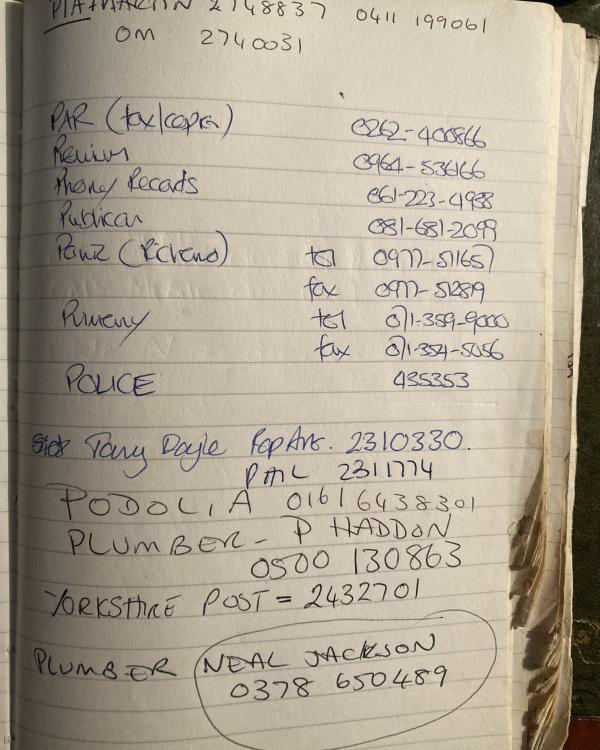 PIA+MARTIN 2748837 0411 199061
OM 2740031
PAR (fax/copier) 0262-400866
Revivum 0964-536166
Phoney Records 061-223-4988
Publican 081-681-2099
(Richard) tel 0977-511657
fax 0977-512819
tel 071-359-9000
fax 071-354-5056
POLICE 435353
Tony Doyle Pop Art. 2310330.
PAL 2311774
PODOLIA 01616438301
PLUMBER - P HADDON
0500 130863
YORKSHIRE POST = 2432701
PLUMBER NEAL JACKSON
0378 650489